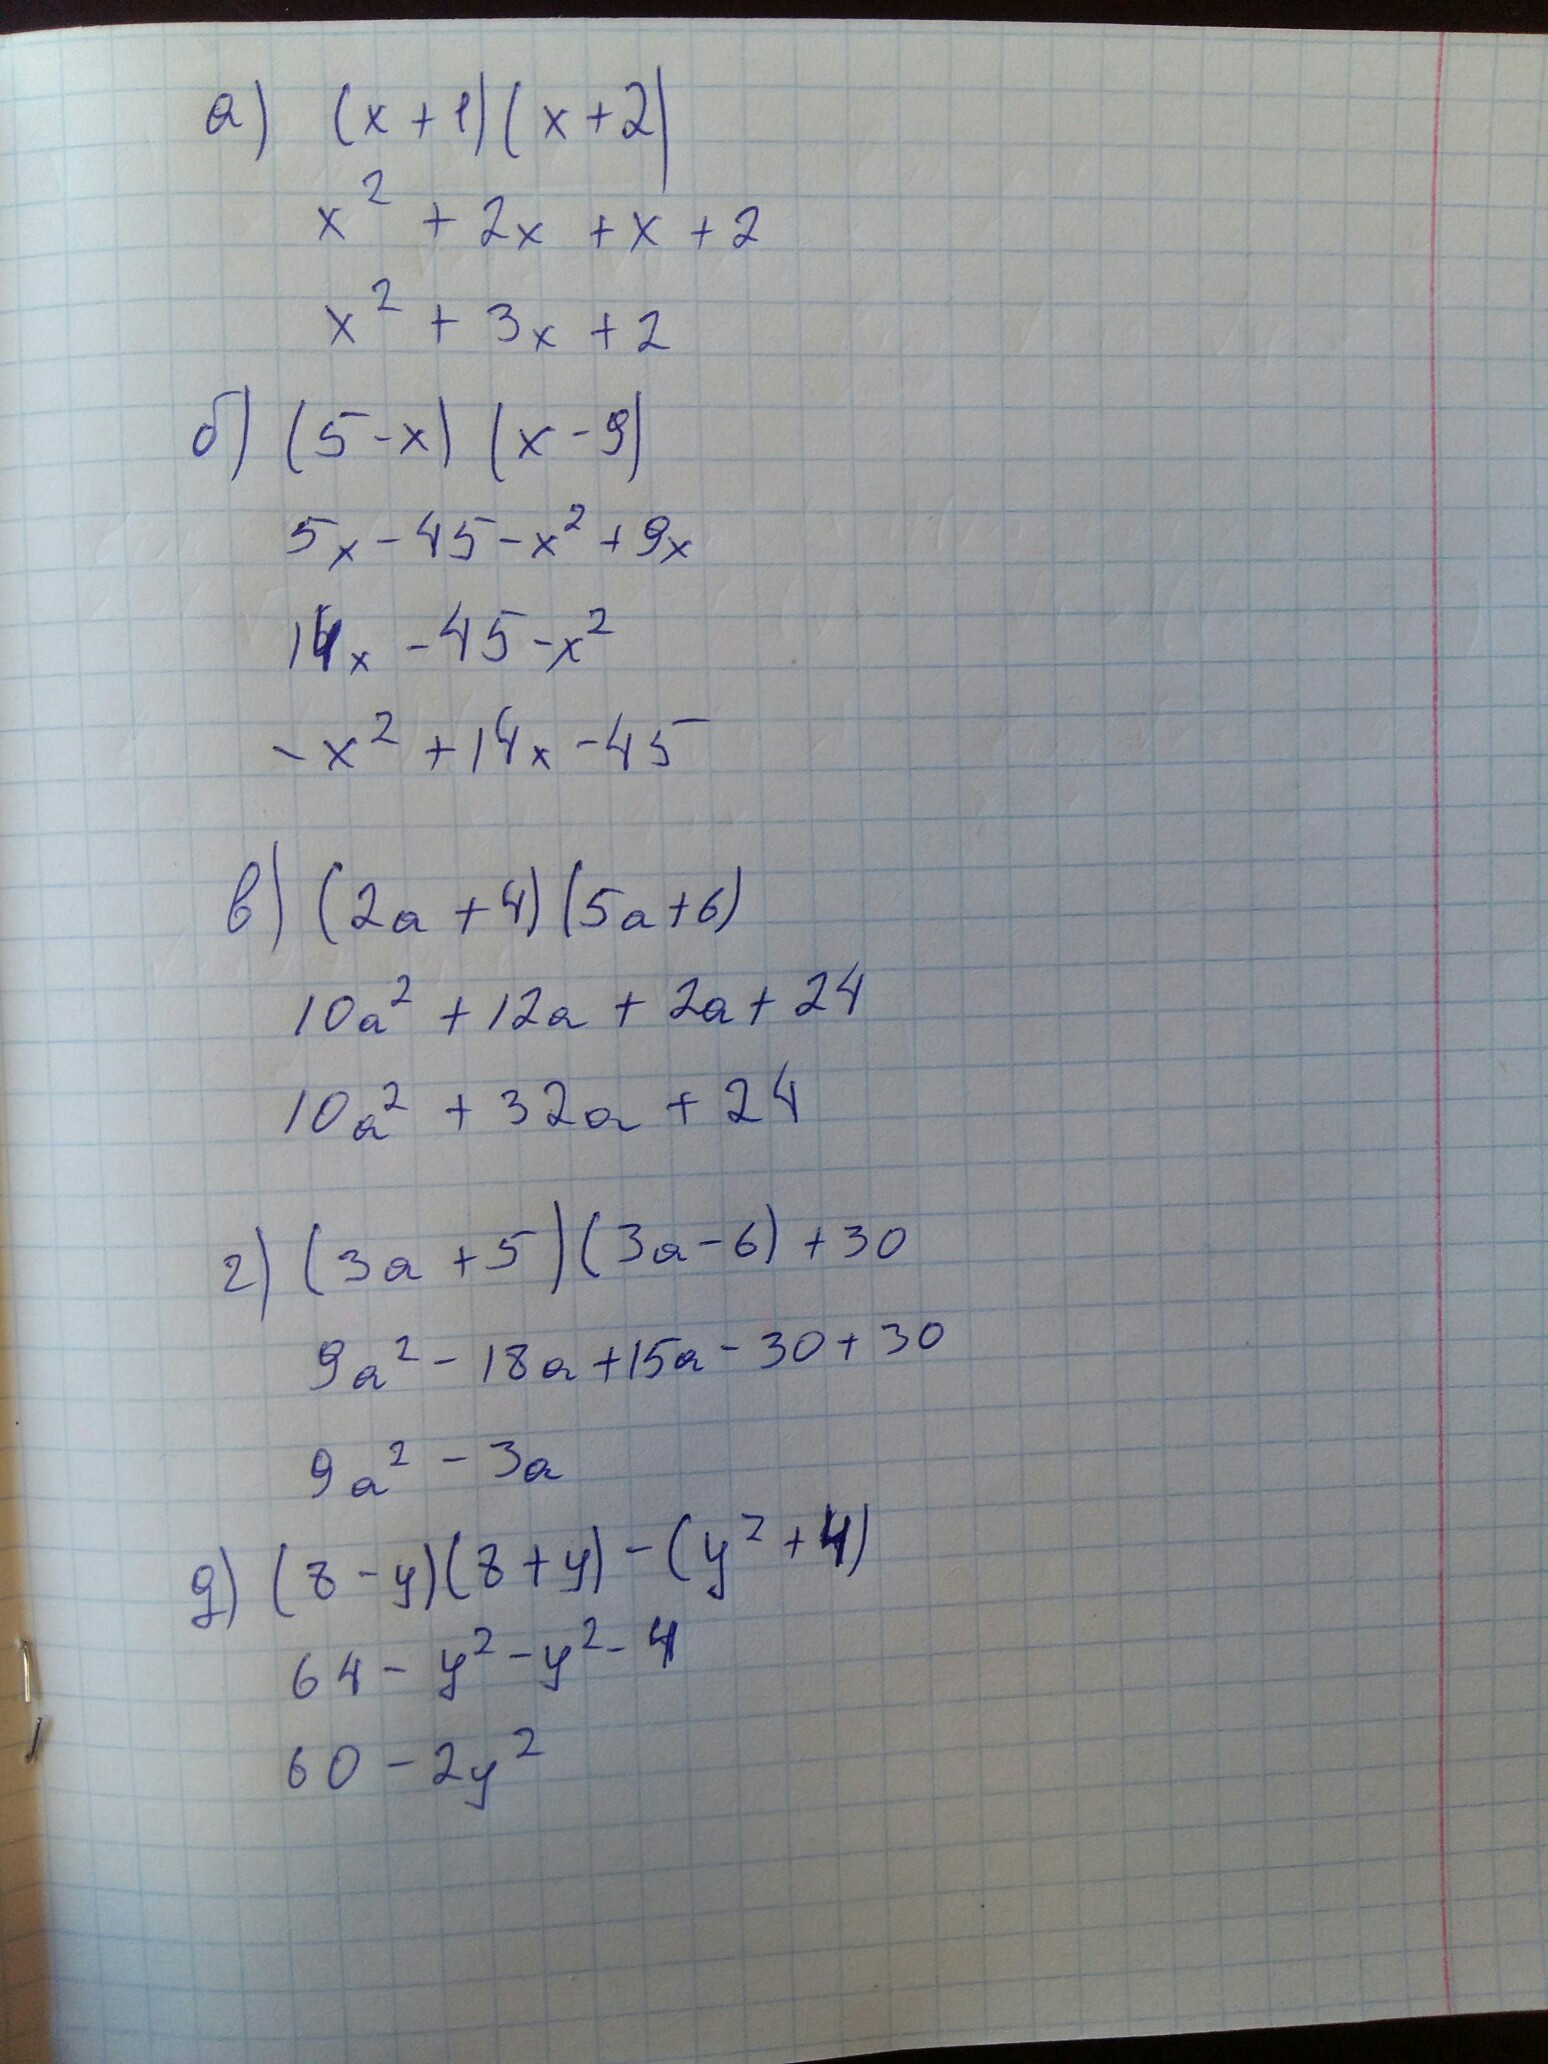 а) (x + 1)(x + 2)
x² + 2x + x + 2
x² + 3x + 2
б) (5 - x) (x - 9)
5x - 45 - x² + 9x
14x - 45 - x²
- x² + 14x - 45
в) (2a + 4)(5a + 6)
10a² + 12a + 2a + 24
10a² + 32a + 24
г) (3a + 5)(3a - 6) + 30
9a² - 18a + 15a - 30 + 30
9a² - 3a
д) (8 - y)(8 + y) - (y² + 4)
64 - y² - y² - 4
60 - 2y²